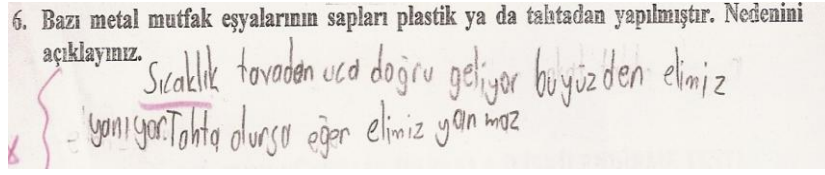 6. Bazı metal mutfak eşyalarının sapları plastik ya da tahtadan yapılmıştır. Nedenini
açıklayınız.
Sıcaklık tavadan uca doğru geliyor bu yüzden elimiz
yanıyor. Tahta olursa eğer elimiz yanmaz